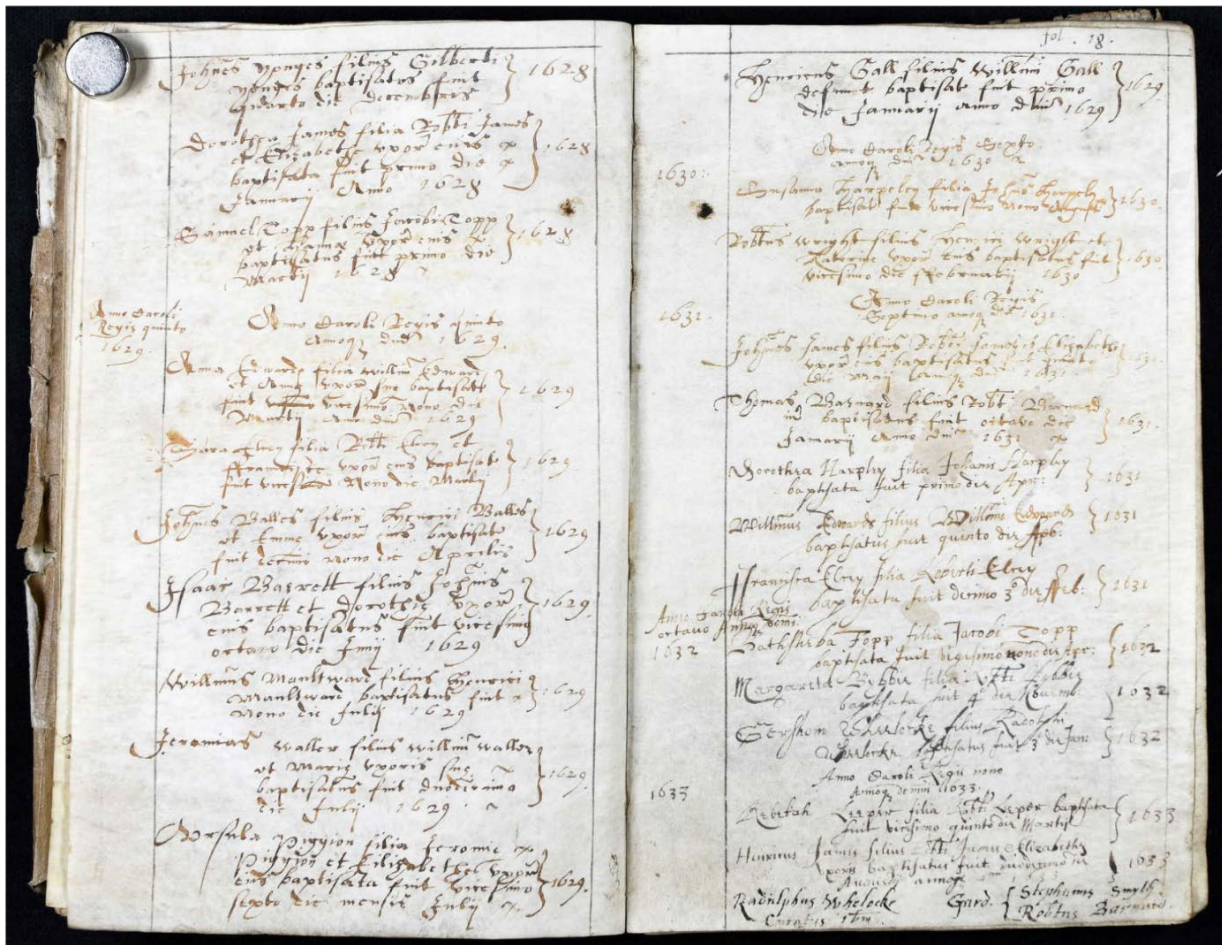 Johnēs yonges filius Gilberti
yonges baptisatus fuit
quarto die decembris
1628
Dorothea James filia Robti James
et Elizabethe uxor eius
baptisata fuit primo die
Januarij Anno 1628
1628
Samuel Topp filius Jacobi Topp
et uxor eius
baptisatus fuit primo die
Martij 1628
1628
Anno Caroli
Regis quinto
1629.
Anno Caroli Regis quinto
Annoq dni 1629.
Anna Edwards filia willm Edwards
et Anne uxor sue baptisata
fuit vicesimo nono die
Martij Anno dni 1629
1629
Sara Elcy filia Robti Elcy et
Francisce uxor eius baptisata
fuit vicesimo Nono die Martij
1629.
Johnēs Balles filius Henrici Balles
et Emme uxor eius baptisatus
fuit decimo nono die Aprilis
1629
Isaac Barrett filius Johnis
Barrett et Dorothie uxor
eius baptisatus fuit vicesimo
octavo die Junij 1629
1629.
Willmus Maultward filius Henrici
Maultward baptisatus fuit
Nono die Julij 1629
1629
Jeremias waller filius willmi waller
et Marie uxoris sue
baptisatus fuit duodecimo
die Julij 1629
1629.
Ursula Piggion filia Jeromie
Piggion et Elizabethe uxor
eius baptisata fuit vicesimo
septo die mensis Julij
1629.
fol. 18.
Henricus Gall filius Willmi Gall
defunct baptisat fuit primo
die Januarij Anno dni 1629
1629
Anno Caroli Regis Sexto
annoq dni 1630
1630:
Susanna Harpeley filia Johnis Harpeley
baptisat fuit vicesimo nono
1630.
Robtus wright filius Henrici wright et
Katerine uxor eius baptisatus fuit
vicesimo die Februarij 1630
1630.
Anno Caroli Regis
Septimo annoq dni 1631.
1631.
Johnēs James filius Robti James Elizabeth
uxor eius baptisatus fuit quinto
die Maij Annoq dni 1631
1631.
Thomas Barnard filius Robt Barnard
baptisatus fuit octavo die
Januarij Anno dni 1631
1631.
Dorothea Harpley filia Johanis Harpley
baptisata fuit primo die Apr:
1631
Willmus Edwards filius Willmi Edwards
baptisatus fuit quinto die
1631
Francisca Elcy filia Roberti Elcy
baptisata fuit decimo 3° die Feb:
1631
Anno Caroli Regis
octavo Annoq domi:
1632
Bathsheba Topp filia Jacobi Topp
baptisata fuit vigesimo nono die Apr:
1632
Margareta filia Robti
baptisata fuit 4° die
1632
Gershom Whelocke filius Radolphi
Whelocke baptisatus fuit 3° die Jan:
1632
Anno Caroli Regis nono
Annoq domini 1633.
1633
Rebekah Leeper filia Robti Leeper baptisata
fuit vicesimo quinto die Martij
1633
Henricus James filius Robti James Elizabethe
uxoris baptisatus fuit
1633
Radulphus Whelocke Gard. Stephanus Smyth.
Curatus ibm. Robtus Barnard.